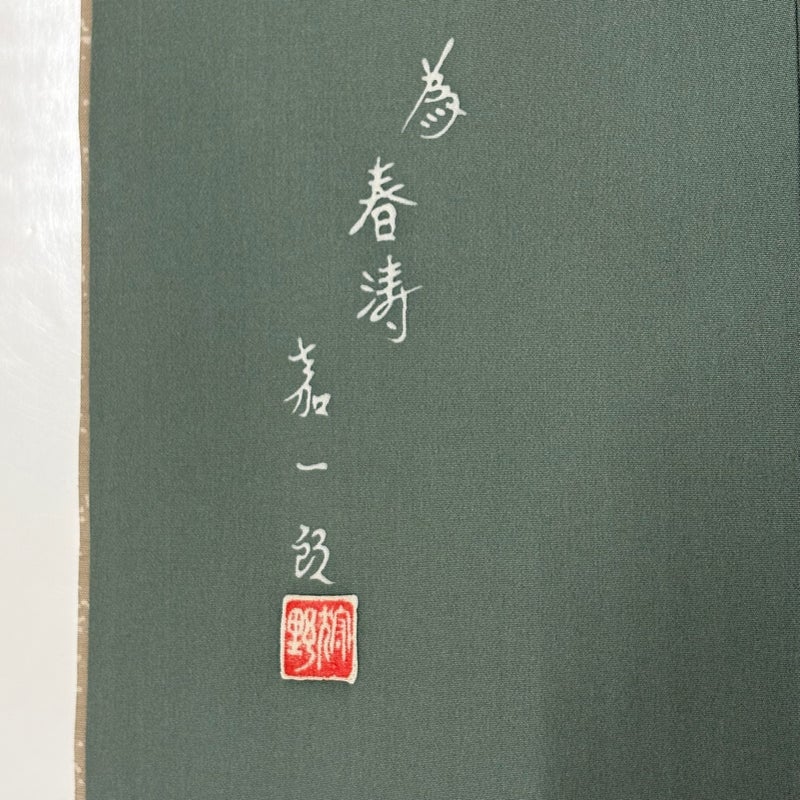 為
春涛
嘉一郎